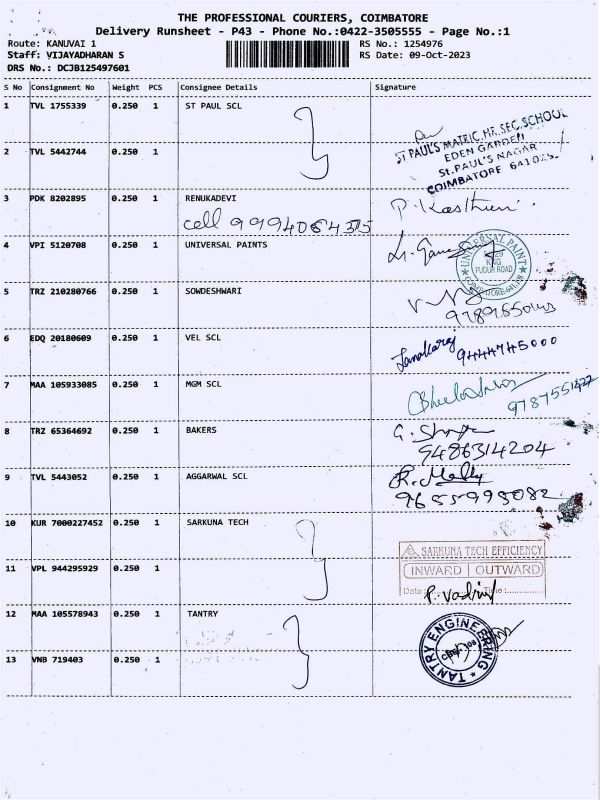 THE PROFESSIONAL COURIERS, COIMBATORE
Delivery Runsheet - P43 - Phone No.:0422-3505555 - Page No.:1
Route: KANUVAI 1 RS No.: 1254976
Staff: VIJAYADHARAN S RS Date: 09-Oct-2023
DRS No.: DCJB125497601
S No Consignment No Weight PCS Consignee Details Signature
1 TVL 1755339 0.250 1 ST PAUL SCL
ST PAUL'S MATRIC.HR.SEC.SCHOOL
EDEN GARDEN
St.PAUL'S NAGAR
COIMBATORE 641025.
2 TVL 5442744 0.250 1
3 PDK 8202895 0.250 1 RENUKADEVI
cell 9994064375 P. Kasthuri
4 VPI 5120708 0.250 1 UNIVERSAL PAINTS
UNIVERSAL PAINT
PUDUR ROAD
5 TRZ 210280766 0.250 1 SOWDESHWARI
6 EDQ 20180609 0.250 1 VEL SCL
9444745000
7 MAA 105933085 0.250 1 MGM SCL
8 TRZ 65364692 0.250 1 BAKERS
9486314204
9 TVL 5443052 0.250 1 AGGARWAL SCL
9655993082
10 KUR 7000227452 0.250 1 SARKUNA TECH
SARKUNA TECH EFFICIENCY
INWARD OUTWARD
11 VPL 944295929 0.250 1
Date Time:
12 MAA 105578943 0.250 1 TANTRY
TANTRY ENGINEERING
13 VNB 719403 0.250 1